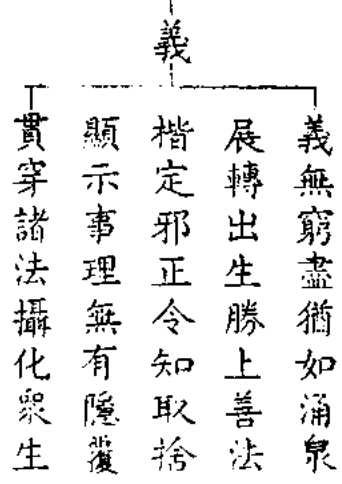 義
義無窮盡猶如涌泉
展轉出生勝上善法
楷定邪正令知取捨
顯示事理無有隱覆
貫穿諸法攝化眾生